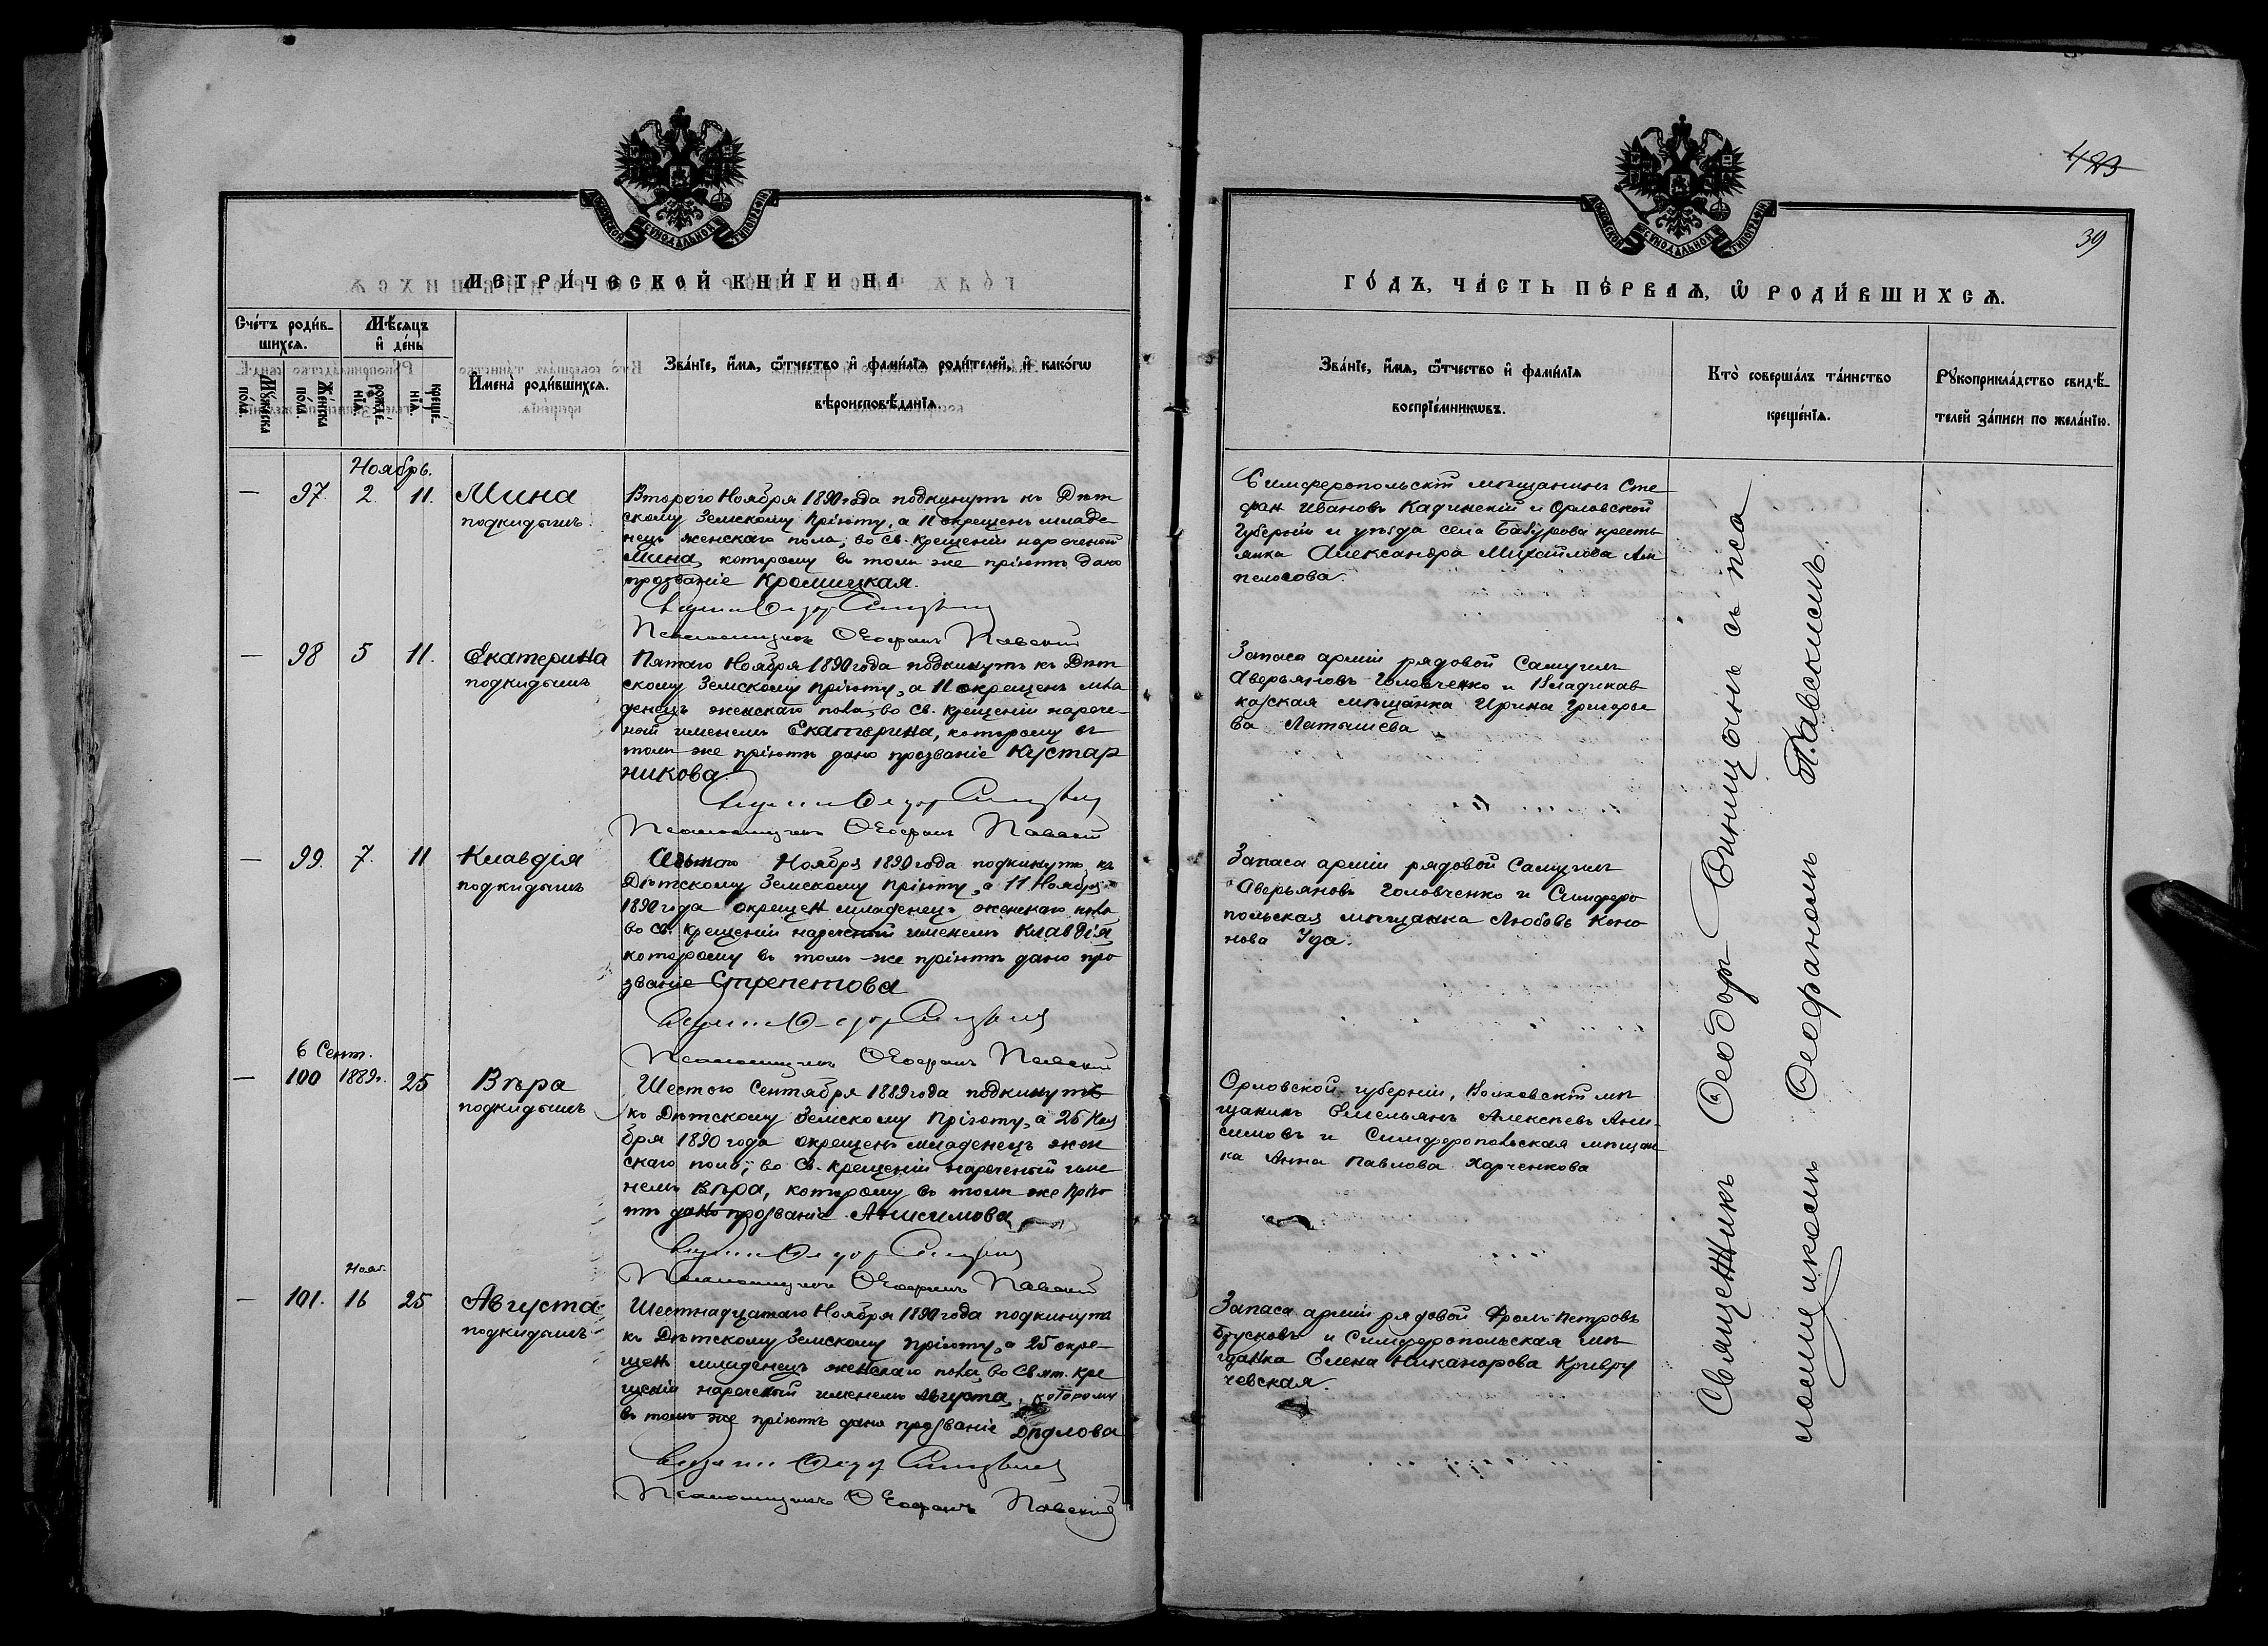 МОСКОВСКОЙ СѴНОДАЛЬНОЙ ТИПОГРАФІИ
МЕТРИ́ЧЕСКОЙ КНИ́ГИ НА
Сче́тъ роди́в-
шихсѧ.
Мѣ́сѧцъ
и҆ де́нь
Мꙋ́жеска
по́ла.
Же́нска
по́ла.
рожде́-
нїѧ.
креще́-
нїѧ.
И҆мена̀ роди́вшихсѧ.
Зва́нїе, и҆́мѧ, ѻ҆́тчество и҆ фами́лїѧ роди́телей, и҆ како́гѡ
вѣроисповѣ́данїѧ.
Ноябрь.
— 97. 2 11. Мина
подкидышъ.
Второго Ноября 1890 года подкинутъ къ Дѣт
скому Земскому Пріюту, а 11 окрещенъ младе-
нецъ женскаго пола, во св. крещеніи нареченой
Мина, которому въ томъ же пріютѣ дано
прозваніе Кромицкая.
Псаломщикъ Ѳеофанъ Павскій
— 98 5 11. Екатерина
подкидышъ
Пятаго Ноября 1890 года подкинутъ къ Дѣт
скому Земскому Пріюту, а 11 окрещенъ мла
денецъ женскаго пола, во св. крещеніи нарече-
ный именемъ Екатерина, которому въ
томъ же пріютѣ дано прозваніе Кустар
никова
Псаломщикъ Ѳеофанъ Павскій
— 99. 7. 11 Клавдія
подкидышъ
Седьмого Ноября 1890 года подкинутъ къ
Дѣтскому Земскому Пріюту, а 11 Ноября
1890 года окрещен младенецъ женскаго пола,
во св. крещеніи нареченый именемъ Клавдія,
которому въ томъ же пріютѣ дано про
званіе Стрепетова
Псаломщикъ Ѳеофанъ Павскій
6 Сент.
— 100 1889г. 25 Вѣра
подкидышъ
Шестого Сентября 1889 года подкинутъ
къ Дѣтскому Земскому Пріюту, а 25 Ноя
бря 1890 года окрещенъ младенецъ жен
скаго пола, во св. крещеніи нареченый име
немъ Вѣра, которому въ томъ же Прію
тѣ дано прозваніе Анисимова
Псаломщикъ Ѳеофанъ Павскій
Нояб.
— 101. 16 25 Августа
подкидышъ
Шестнадцатаго Ноября 1890 года подкинутъ
къ Дѣтскому Земскому Пріюту, а 25 окре-
щен младенецъ женскаго пола, во Свят. кре
щеніи нареченый именемъ Августа, которому
въ томъ же пріютѣ дано прозваніе Дѣдлова
Псаломщикъ Ѳеофанъ Павскій
423
39
МОСКОВСКОЙ СѴНОДАЛЬНОЙ ТИПОГРАФІИ
ГО́ДЪ, ЧА́СТЬ ПЕ́РВАѦ, Ѡ҆ РОДИ́ВШИХСѦ.
Зва́нїе, и҆́мѧ, ѻ҆́тчество и҆ фами́лїѧ
воспрїе́мникѡвъ.
Кто̀ соверша́лъ та́инство
креще́нїѧ.
Рꙋкоприкла́дство свидѣ́-
телей за́писи по жела́нїю.
Симферопольскій мѣщанинъ Сте
фан Ивановъ Кадинскій и Орловской
Губерніи и уѣзда села Бабурова кресть
янка Александра Михайлова Ам
пелогова.
Запаса арміи рядовой Самуилъ
Аверьяновъ Головченко и Владикав
казская мѣщанка Ирина Григорье
ва Латышева
Запаса арміи рядовой Самуилъ
Аверьяновъ Головченко и Симферо
польская мѣщанка Любовь Коно
нова Уда.
Орловской губерніи, Волховскій мѣ
щанинъ Емельянъ Алексѣевъ Ани-
симовъ и Симферопольская мѣщан
ка Анна Павлова Харченкова
Запаса арміи рядовой Фролъ Петровъ
Брусковъ и Симферопольская мѣ
щанка Елена Никанорова Кривру
чевская.
Священникъ Ѳеодоръ Синицынъ съ пса
ломщикомъ Ѳеофаномъ Павскимъ.